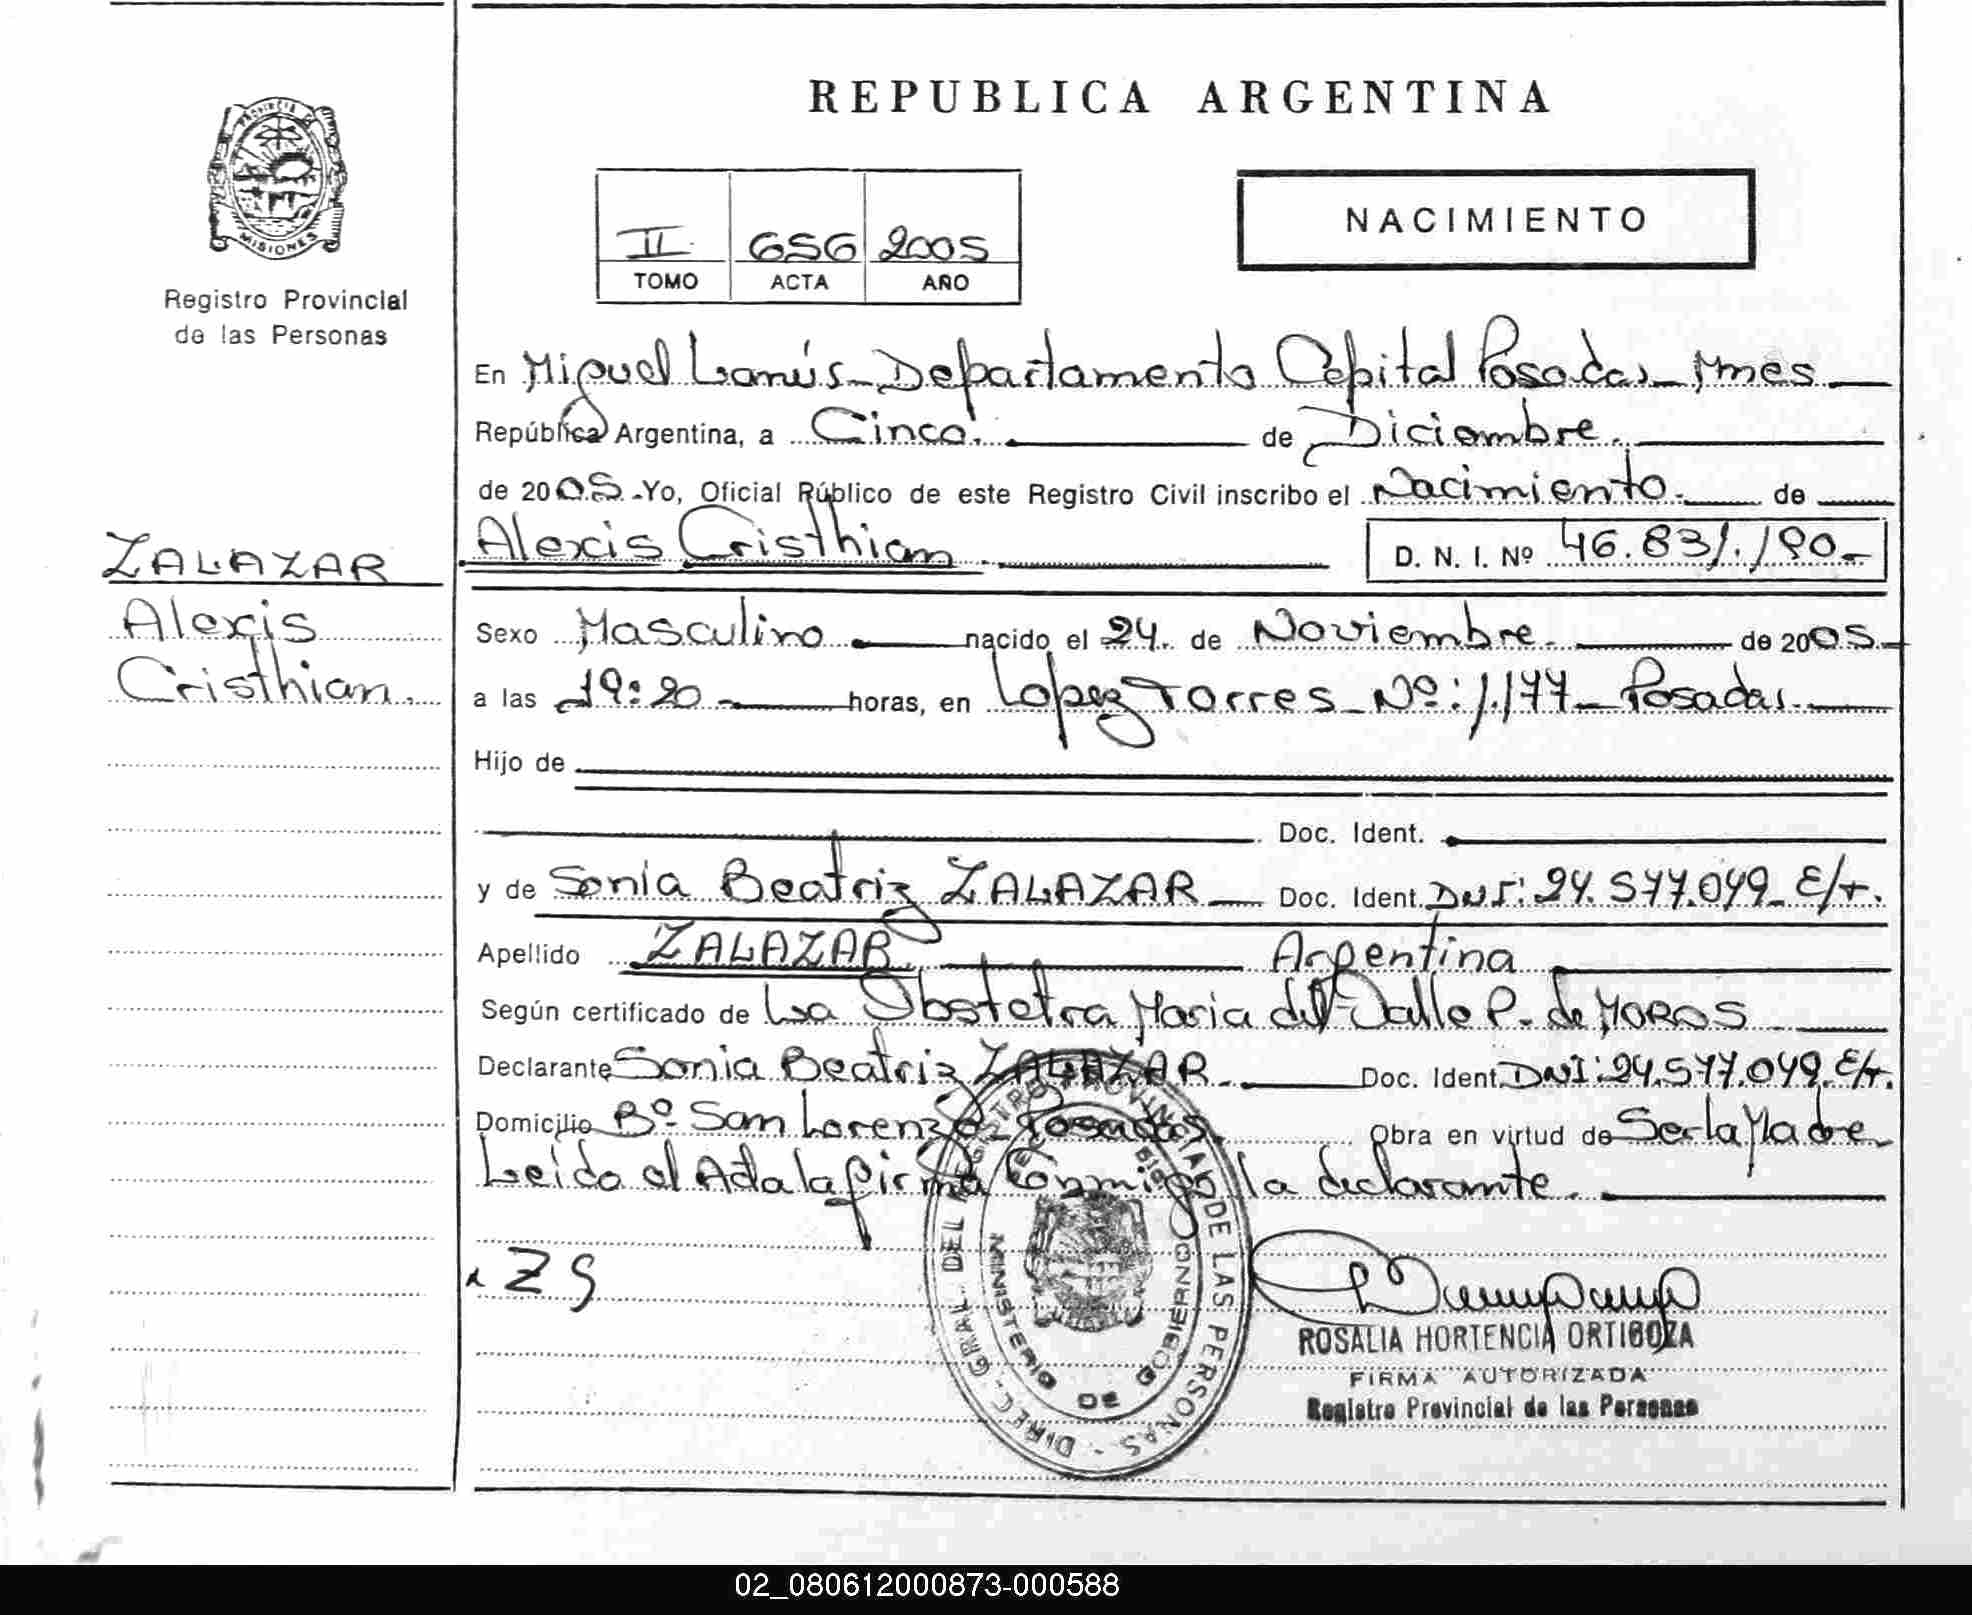 REPUBLICA ARGENTINA
PROVINCIA DE
MISIONES
Registro Provincial
de las Personas
II 656 2005
TOMO ACTA AÑO
NACIMIENTO
En Miguel Lanús - Departamento Capital Posadas - Mnes
República Argentina, a Cinco. de Diciembre.
de 2005.-Yo, Oficial Público de este Registro Civil inscribo el Nacimiento. de
Alexis Cristhian D. N. I. Nº 46.831.190.-
ZALAZAR
Alexis
Cristhian.
Sexo Masculino nacido el 24. de Noviembre. de 2005.-
a las 19:20 horas, en Lopez Torres - Nº: 1.177 - Posadas.
Hijo de
Doc. Ident.
y de Sonia Beatriz ZALAZAR Doc. Ident. DNI: 24.577.049 - E/t.
Apellido ZALAZAR Argentina
Según certificado de La Obstetra Maria del Valle P. de MOROS
Declarante Sonia Beatriz ZALAZAR. Doc. Ident. DNI: 24.577.049. E/t.
Domicilio Bº San Lorenzo - Posadas. Obra en virtud de Ser la Madre
Leida el Acta la firma Conmigo la declarante.
x ZS
DIREC. GRAL. DEL REGISTRO PROVINCIAL DE LAS PERSONAS -
MINISTERIO DE GOBIERNO
ROSALIA HORTENCIA ORTIGOZA
FIRMA AUTORIZADA
Registro Provincial de las Personas
02_080612000873-000588